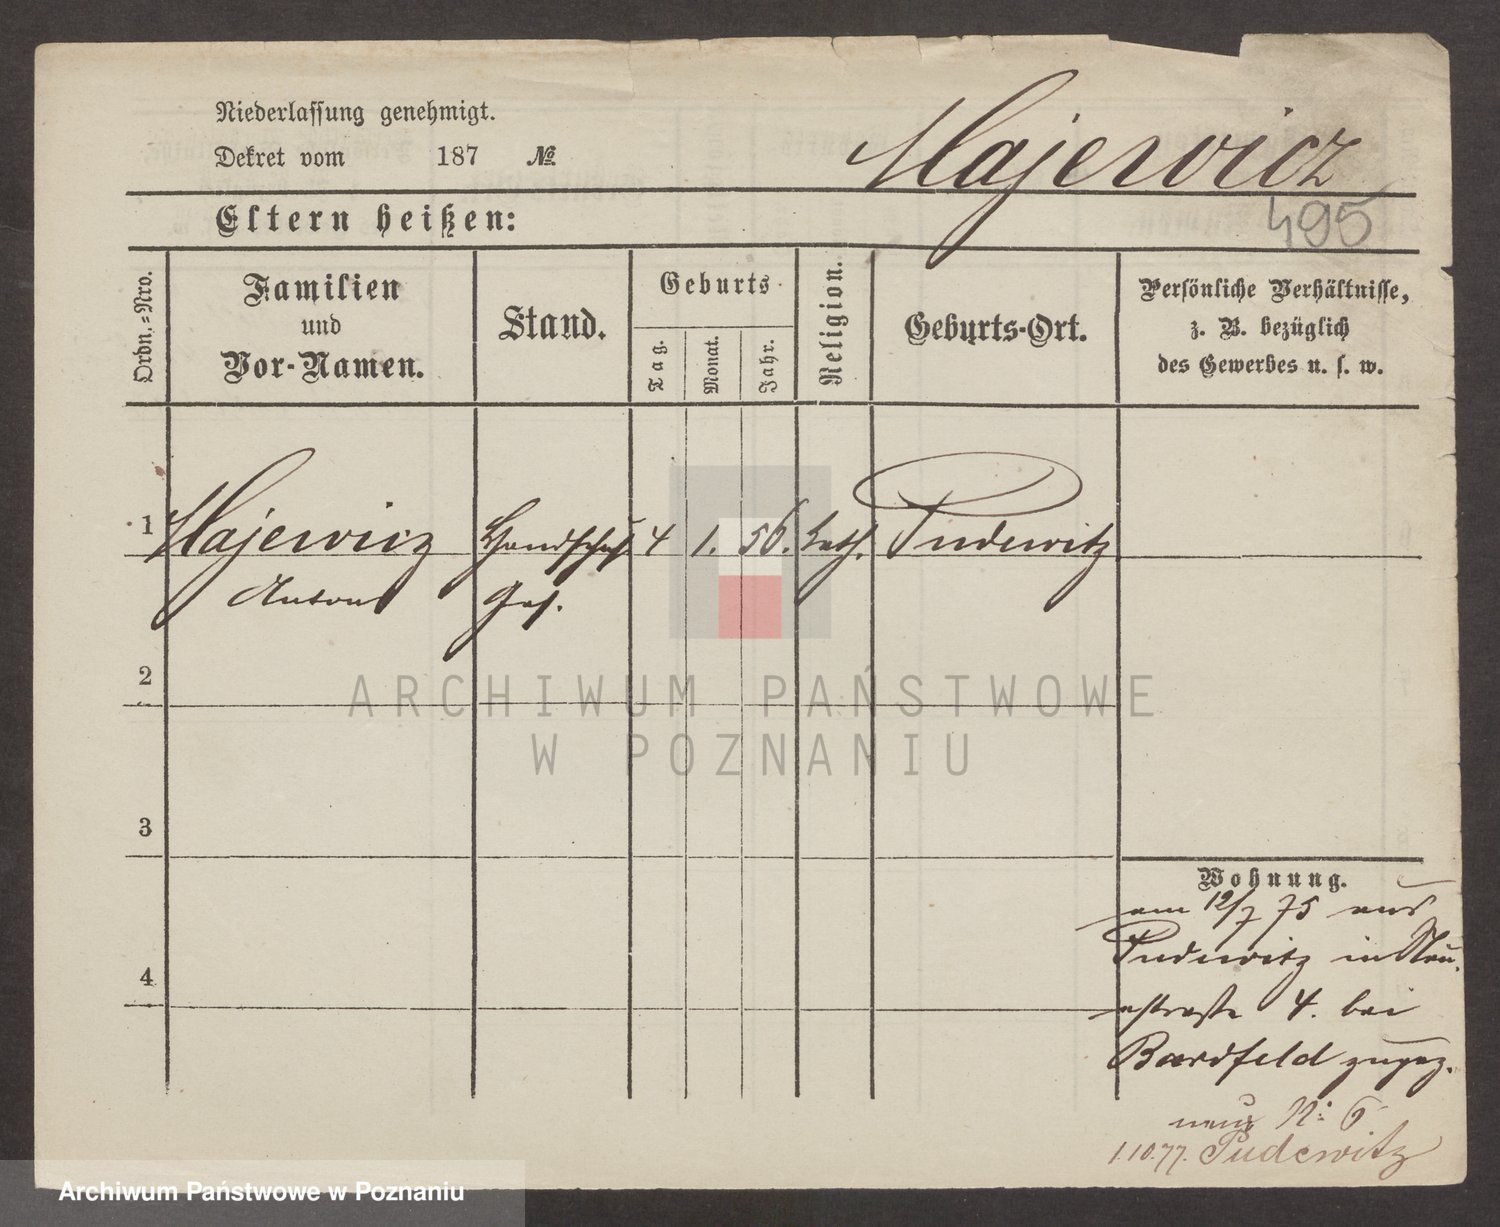 Niederlassung genehmigt.
Dekret vom 187 №
Majewicz
Eltern heißen:
495
Ordn.-Nro.
Familien
und
Vor-Namen.
Stand.
Geburts
Tag.
Monat.
Jahr.
Religion.
Geburts-Ort.
Persönliche Verhältnisse,
z. B. bezüglich
des Gewerbes u. s. w.
1 Majewicz Handschuh 4 1. 56. kath. Pudewitz
Anton Ges.
2
ARCHIWUM PAŃSTWOWE
W POZNANIU
3
4
Wohnung.
am 12/7 75 aus
Pudewitz in Neu-
estraße 4. bei
Bardfeld zugez.
neue N: 6
1.10.77. Pudewitz
Archiwum Państwowe w Poznaniu